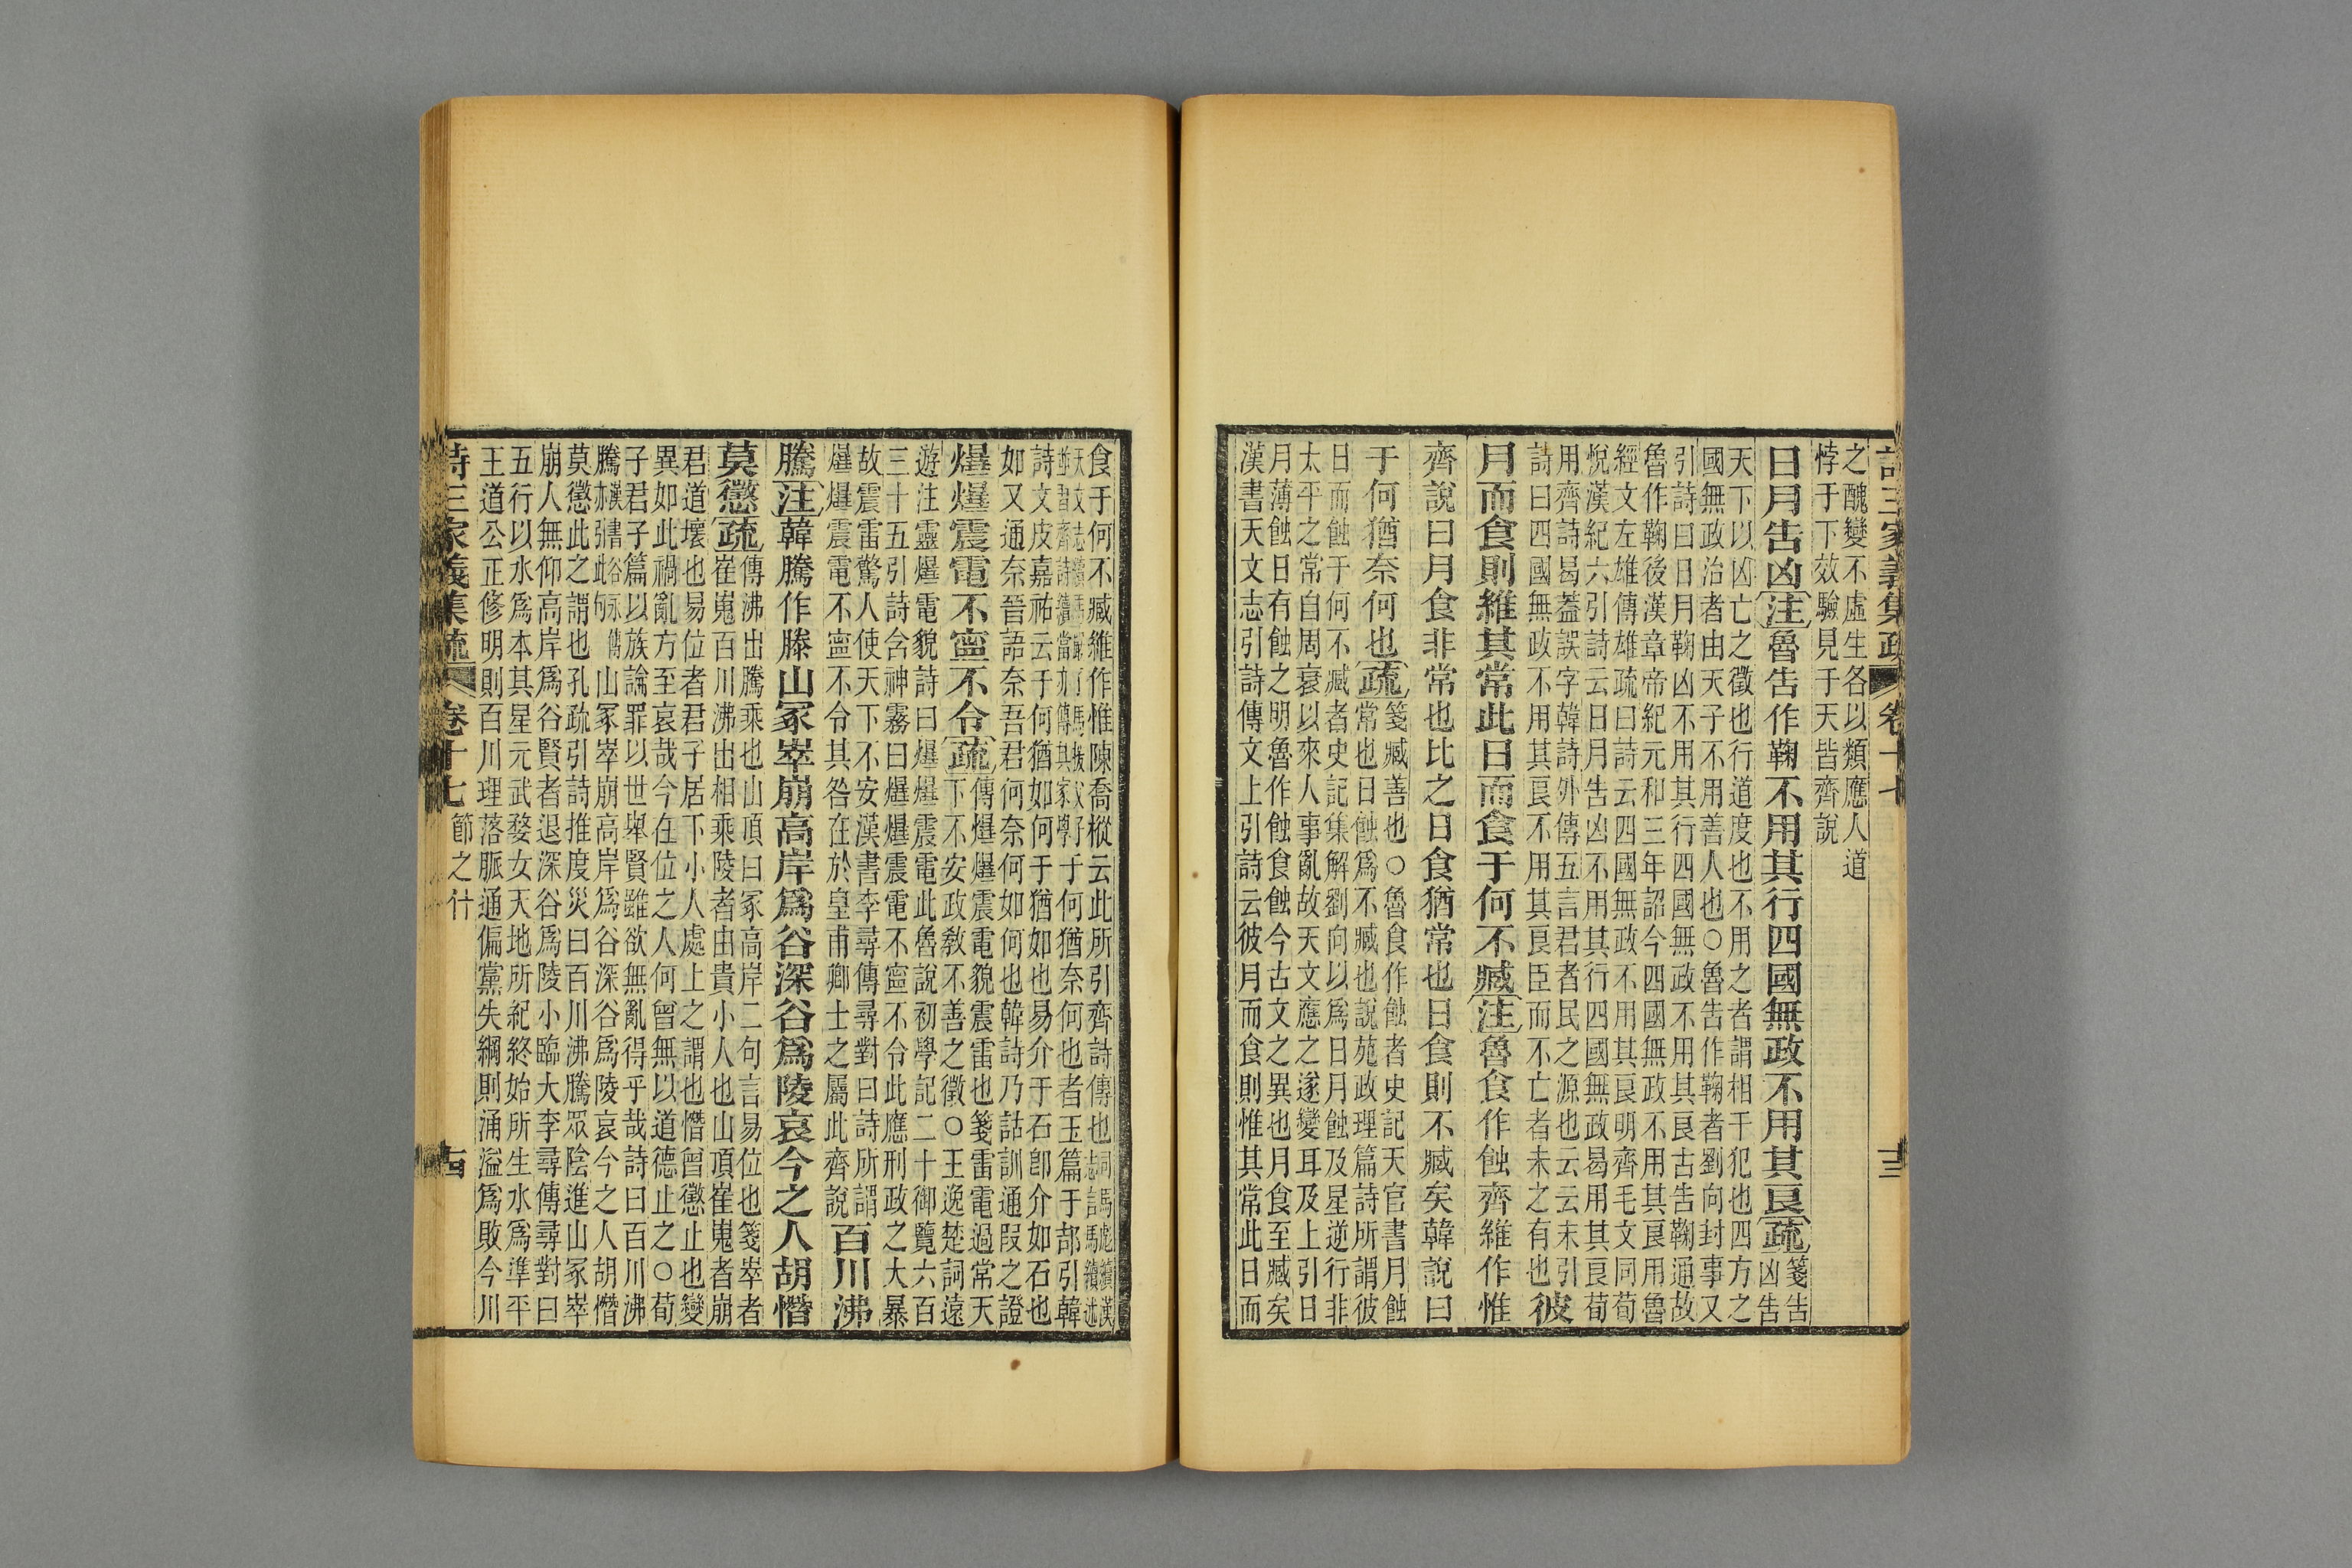 之醜變不虛生各以類應人道
悖于下效驗見于天皆齊說
日月告凶注魯告作鞠不用其行四國無政不用其良疏箋告凶告
天下以凶亡之徵也行道度也不用之者謂相干犯也四方之
國無政治者由天子不用善人也○魯告作鞠者劉向封事又
引詩曰日月鞠凶不用其行四國無政不用其良古告鞠通故
魯作鞠後漢章帝紀元和三年詔今四國無政不用其良用魯
經文左雄傳雄疏曰詩云四國無政不用其良明齊毛文同荀
悅漢紀六引詩云日月告凶不用其行四國無政曷用其良荀
用齊詩曷蓋誤字韓詩外傳五言君者民之源也云云未引
詩曰四國無政不用其良不用其良臣而不亡者未之有也彼
月而食則維其常此日而食于何不臧注魯食作蝕齊維作惟
齊說曰月食非常也比之日食猶常也日食則不臧矣韓說曰
于何猶奈何也疏箋臧善也○魯食作蝕者史記天官書月蝕
常也日蝕爲不臧也說苑政理篇詩所謂彼
日而蝕于何不臧者史記集解劉向以爲日月蝕及星逆行非
太平之常自周衰以來人事亂故天文應之遂變耳及上引日
月薄蝕日有蝕之明魯作蝕食蝕今古文之異也月食至臧矣
漢書天文志引詩傳文上引詩云彼月而食則惟其常此日而
詩三家義集疏 卷十七 十三
食于何不臧維作惟陳喬樅云此所引齊詩傳也
學于何猶奈何也者玉篇于部引韓
詩文皮嘉祐云于何猶如何于猶如也易介于石卽介如石也
如又通奈晉語奈吾君何奈何如何也韓詩乃詁訓通叚之證
爗爗震電不寍不令疏傳爗爗震電貌震雷也箋雷電過常天
下不安政敎不善之徵○王逸楚詞遠
遊注靈爗電貌詩曰爗爗震電此魯說初學記二十御覽六百
三十五引詩含神霧曰爗爗震電不寍不令此應刑政之大暴
故震雷驚人使天下不安漢書李尋傳尋對曰詩所謂
爗爗震電不寍不令其咎在於皇甫卿士之屬此齊說百川沸
騰注韓騰作滕山冢崒崩高岸爲谷深谷爲陵哀今之人胡憯
莫懲疏傳沸出騰乘也山頂曰冢高岸二句言易位也箋崒者
崔嵬百川沸出相乘陵者由貴小人也山頂崔嵬者崩
君道壞也易位者君子居下小人處上之謂也憯曾懲止也變
異如此禍亂方至哀哉今在位之人何曾無以道德止之○荀
子君子篇以族論罪以世舉賢雖欲無亂得乎哉詩曰百川沸
騰山冢崒崩高岸爲谷深谷爲陵哀今之人胡憯
莫懲此之謂也孔疏引詩推度災曰百川沸騰眾陰進山冢崒
崩人無仰高岸爲谷賢者退深谷爲陵小臨大李尋傳尋對曰
五行以水爲本其星元武婺女天地所紀終始所生水爲準平
王道公正修明則百川理落脈通偏黨失綱則涌溢爲敗今川
詩三家義集疏 卷十七 節之什 十四